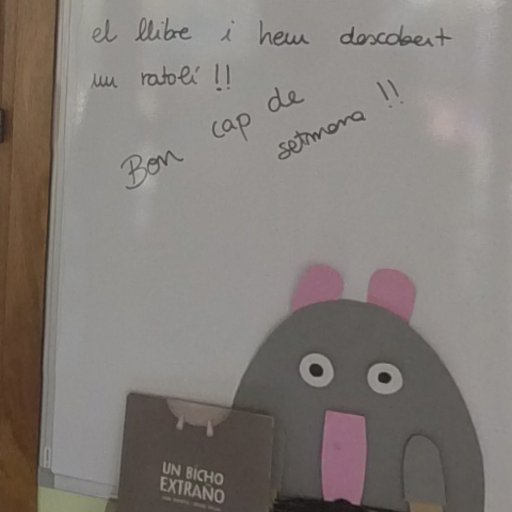 el llibre i hem descobert
un ratolí !!
Bon cap de
setmana !!
UN BICHO
EXTRAÑO